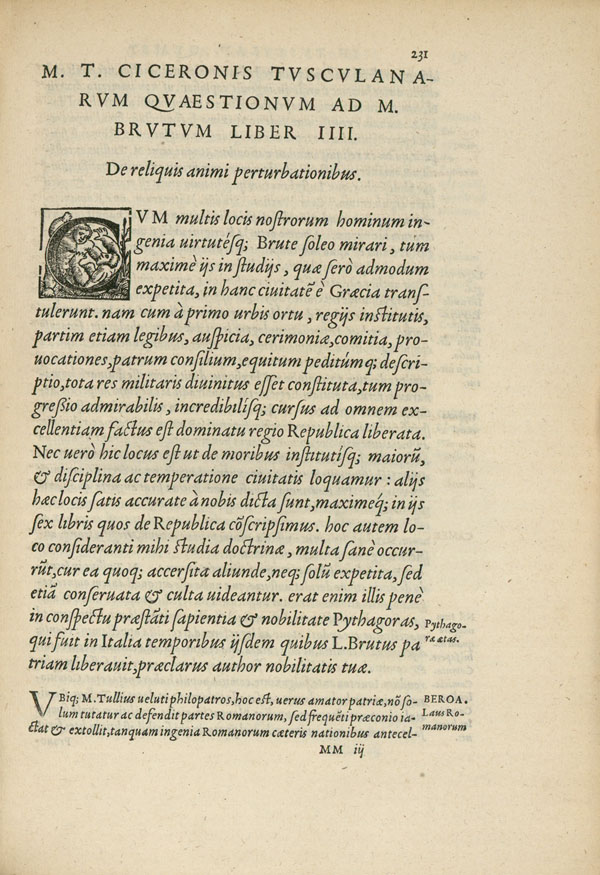 231
M. T. CICERONIS TVSCVLANA-
RVM QVAESTIONVM AD M.
BRVTVM LIBER IIII.
De reliquis animi perturbationibus.
CVM multis locis nostrorum hominum in-
genia uirtutésq; Brute soleo mirari, tum
maximè ijs in studijs, quæ serò admodum
expetita, in hanc ciuitatẽ è Græcia trans-
tulerunt. nam cum à primo urbis ortu, regijs institutis,
partim etiam legibus, auspicia, cerimoniæ, comitia, pro-
uocationes, patrum consilium, equitum peditúmq; descri-
ptio, tota res militaris diuinitus esset constituta, tum pro-
greßio admirabilis, incredibilisq; cursus ad omnem ex-
cellentiam factus est dominatu regio Republica liberata.
Nec uerò hic locus est ut de moribus institutisq; maiorũ,
& disciplina ac temperatione ciuitatis loquamur: alijs
hæc locis satis accurate à nobis dicta sunt, maximeq́; in ijs
sex libris quos de Republica cõscripsimus. hoc autem lo-
co consideranti mihi studia doctrinæ, multa sanè occur-
rũt, cur ea quoq; accersita aliunde, neq; solũ expetita, sed
etiã conseruata & culta uideantur. erat enim illis penè
in conspectu præstãti sapientia & nobilitate Pythagoras,
Pythago-
ræ ætas.
qui fuit in Italia temporibus ijsdem quibus L. Brutus pa
triam liberauit, præclarus author nobilitatis tuæ.
VBiq; M. Tullius ueluti philopatros, hoc est, uerus amator patriæ, nõ so-
lum tutatur ac defendit partes Romanorum, sed frequẽti præconio ia-
ctat & extollit, tanquam ingenia Romanorum cæteris nationibus antecel-
BEROA.
Laus Ro-
manorum
MM iij